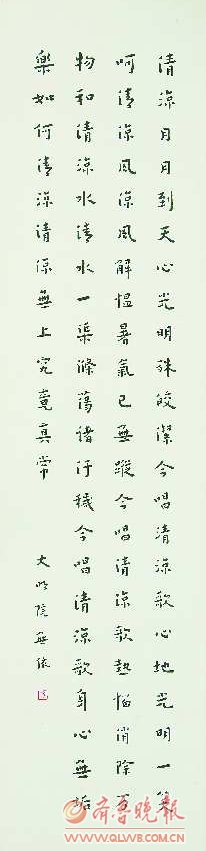 清凉月月到天心光明殊皎潔今唱清凉歌心地光明一笑
呵清凉風凉風解愠暑氣已無蹤今唱清凉歌熱惱消除萬
物和清凉水清水一渠滌蕩諸污穢今唱清凉歌身心無垢
樂如何清凉清凉無上究竟真常
大明院無依
齐鲁晚报
WWW.QLWB.COM.CN